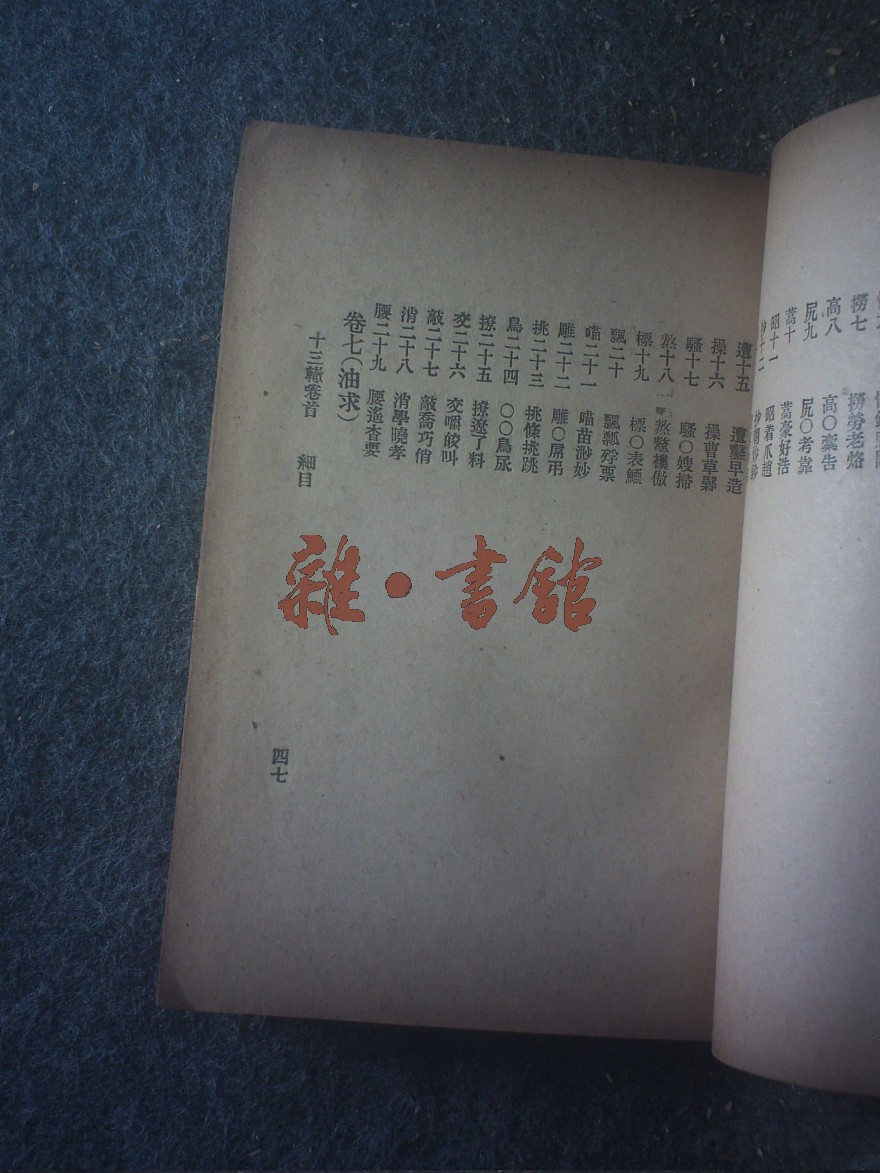 撈七　撈勞老烙
高八　高〇稾告
尻九　尻〇考靠
蒿十　蒿豪好浩
昭十一　昭着爪趙
遭十五　遭鑿早造
操十六　操曹草
騷十七　騷〇嫂掃
熬十八　熬鼇襖傲
標十九　標〇表鰾
飄二十　飄瓢殍票
喵二十一　喵苗渺妙
雕二十二　雕〇屌弔
挑二十三　挑條挑跳
鳥二十四　〇〇鳥尿
撩二十五　撩遼了料
交二十六　交嚼餃叫
敲二十七　敲喬巧俏
消二十八　消學曉孝
腰二十九　腰遙杳要
卷七（油求）
十三轍卷首　細目
四七
雜・書館